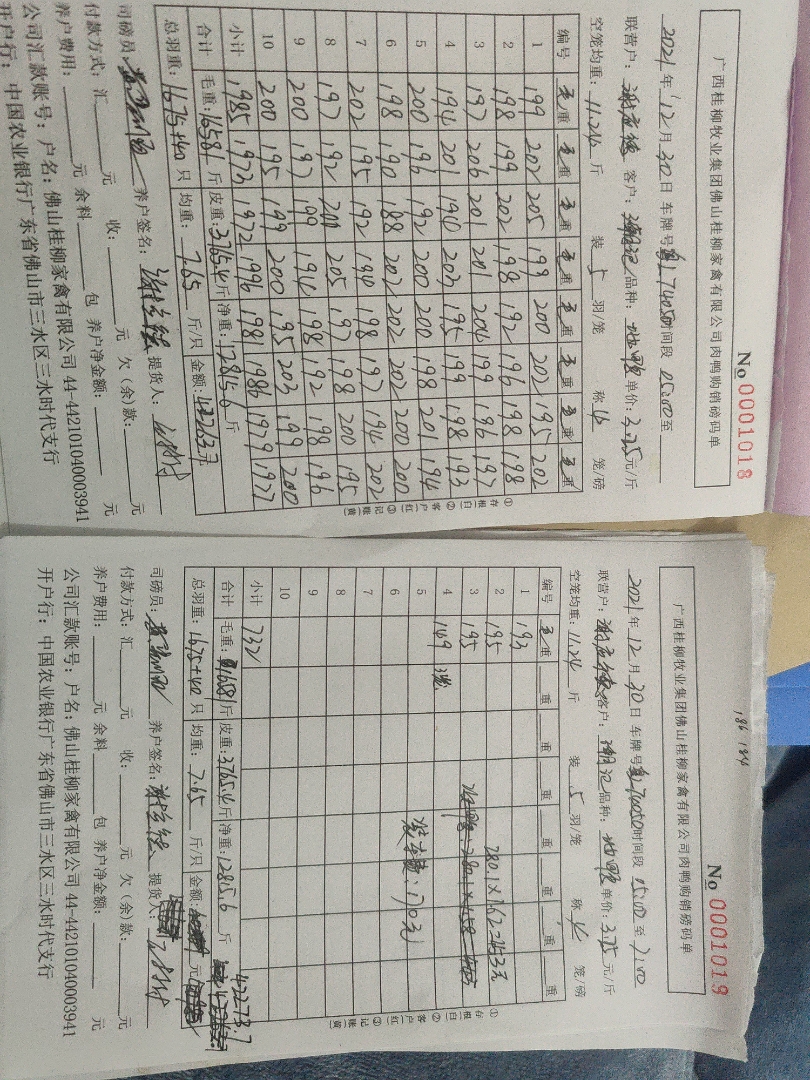 广西桂柳牧业集团佛山桂柳家禽有限公司肉鸭购销磅码单
No 0001018
2021年12月30日 车牌号 74050 时间段 05:00至
联营户: 客户: 品种: 单价: 3.275元/斤
空笼均重: 11.24 斤 装 5 羽/笼 称 4 笼/磅
编号 毛重 毛重 毛重 毛重 毛重 毛重 毛重 毛重
1 199 202 205 199 200 202 195 202
2 198 199 202 198 192 196 198 198
3 197 206 201 201 204 199 196 197
4 194 201 190 203 195 199 198 193
5 200 196 192 200 200 198 201 194
6 198 190 188 202 202 202 200 200
7 202 195 192 190 198 197 194 202
8 197 192 200 205 197 198 200 195
9 200 197 199 194 198 192 198 196
10 200 195 199 200 195 203 199 200
小计 1985 1973 1972 1996 1981 1986 1979 1977
合计 毛重: 16581 斤 皮重: 3765.4 斤 净重: 12815.6 斤
总羽重: 1675+40 只 均重: 7.65 斤/只 金额: 元
司磅员: 养户签名: 提货人:
付款方式: 汇 元 收: 元 欠(余)款: 元
养户费用: 元 余料 包 养户净金额: 元
公司汇款账号: 户名: 佛山桂柳家禽有限公司 44-442101040003941
开户行: 中国农业银行广东省佛山市三水区三水时代支行
①存根(白) ②客户(红) ③记账(黄)
186 184
广西桂柳牧业集团佛山桂柳家禽有限公司肉鸭购销磅码单
No 0001019
2021年12月30日 车牌号 74050 时间段 05:00至7:00
联营户: 客户: 品种: 单价: 元/斤
空笼均重: 11.24 斤 装 5 羽/笼 称 4 笼/磅
编号 毛重 重 重 重 重 重 重 重
1 193
2 195 280.1×1.62=453元
3 195
4 149 3笼
5 装车费: 170元
6
7
8
9
10
小计 732
合计 毛重: 16581 斤 皮重: 3765.4 斤 净重: 12815.6 斤 42273.7
总羽重: 1675+40 只 均重: 7.65 斤/只 金额: 元
司磅员: 养户签名: 提货人:
付款方式: 汇 元 收: 元 欠(余)款: 元
养户费用: 元 余料 包 养户净金额: 元
公司汇款账号: 户名: 佛山桂柳家禽有限公司 44-442101040003941
开户行: 中国农业银行广东省佛山市三水区三水时代支行
①存根(白) ②客户(红) ③记账(黄)